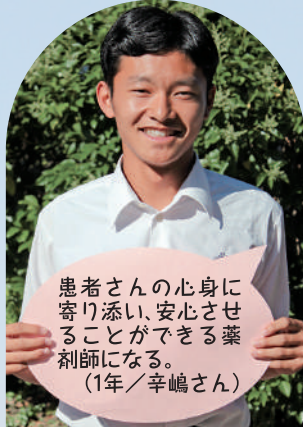 患者さんの心身に
寄り添い、安心させ
ることができる薬
剤師になる。
(1年／辛嶋さん)